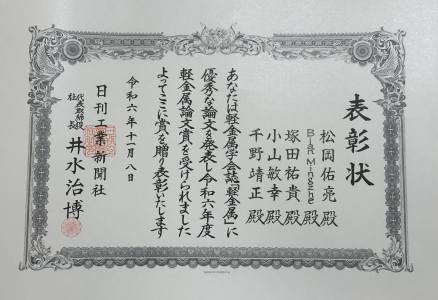 表彰状
松岡佑亮殿
Bian Mingzhe殿
塚田祐貴殿
小山敏幸殿
千野靖正殿
あなたは軽金属学会誌「軽金属」に
優秀な論文を発表し令和六年度
軽金属論文賞を受けられました
よってここに賞を贈り表彰いたします
令和六年十一月八日
日刊工業新聞社
代表取締役
社長
井水治博